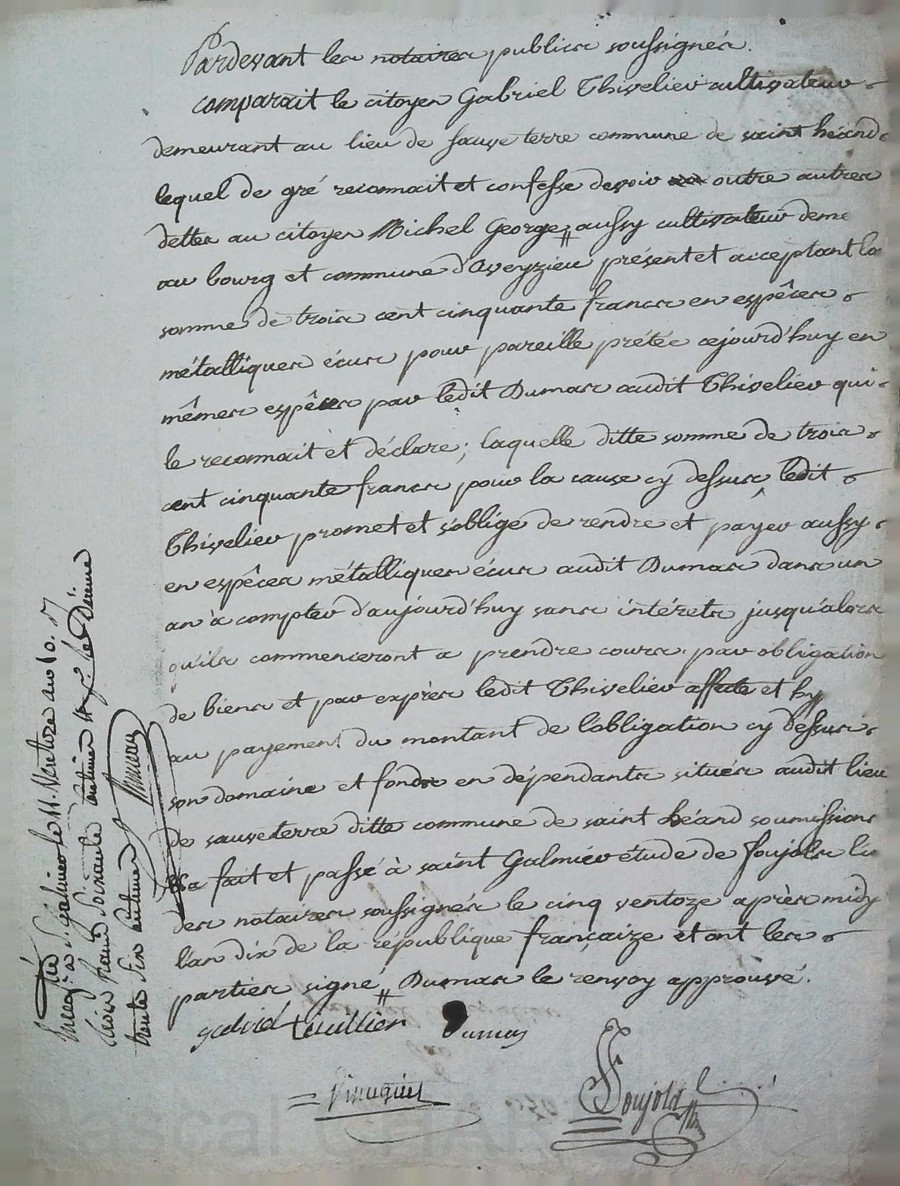 Pardevant les notaires publics soussignés.
comparait le citoyen Gabriel Thivelier cultivateur
demeurant au lieu de sauveterre commune de saint héand
lequel de gré reconnait et confesse devoir outre autres
dettes au citoyen Michel George aussy cultivateur deme
au bourg et commune d'aveyzieu présent et acceptant la
somme de trois cent cinquante francs en espêces
métalliques écus pour pareille prétée cejourd'huy en
mêmes espêces par ledit Dumas audit Thivelier qui
le reconnait et déclare; laquelle ditte somme de trois
cent cinquante francs pour la cause cy dessus ledit
Thivelier promet et s'oblige de rendre et payer aussy
en espêces métalliques écus audit Dumas dans un
an à compter d'aujourd'huy sans intérets jusqu'alors
qu'ils commenceront a prendre cours. par obligation
de biens et par exprès ledit Thivelier affecte et hy
au payement du montant de l'obligation cy dessus
son domaine et fonds en dépendants situés audit lieu
de sauveterre ditte commune de saint héand soumissions
fait et passé à saint Galmier étude de Foujols
des notaires soussignés le cinq ventoze après midy
l'an dix de la république françaize et ont les
parties signé Dumas le renvoy approuvé.
Dumas
Foujols
Galmier le 11 Ventoze an 10.
trois francs soixante centimes
trente six centimes